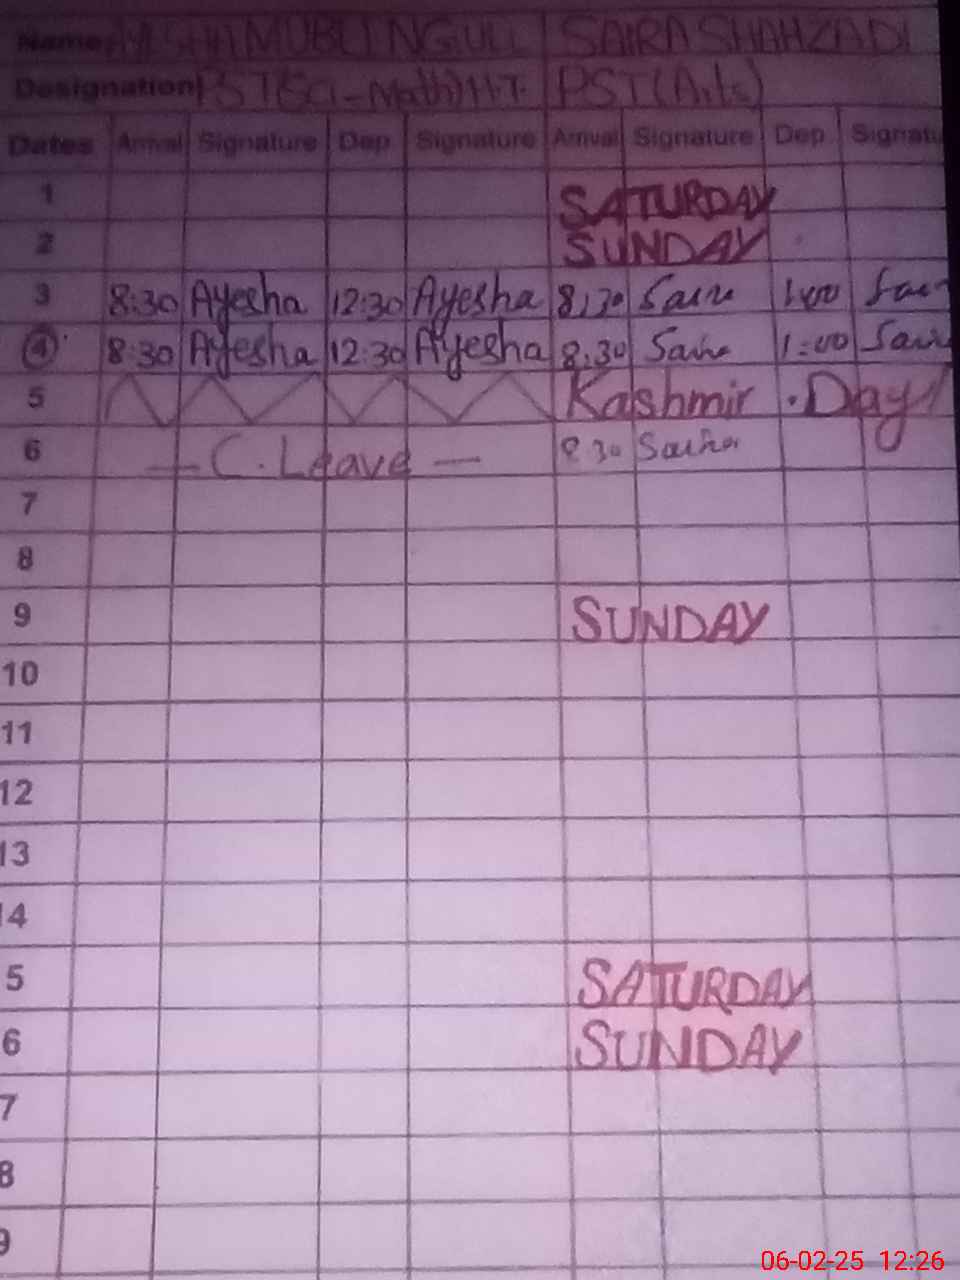 Name AYESHA MUBEEN GULL SAIRA SHAHZADI
Designation PST(Sci-Math)H.T. PST(Arts)
Dates Arrival Signature Dep Signature Arrival Signature Dep Signatu
1 SATURDAY
2 SUNDAY
3 8:30 Ayesha 12:30 Ayesha 8:30 1:00
4 8:30 Ayesha 12:30 Ayesha 8:30 1:00
5 Kashmir Day
6 C. Leave 8:30 Saira
7
8
9 SUNDAY
10
11
12
13
14
5 SATURDAY
6 SUNDAY
7
8
9
06-02-25 12:26